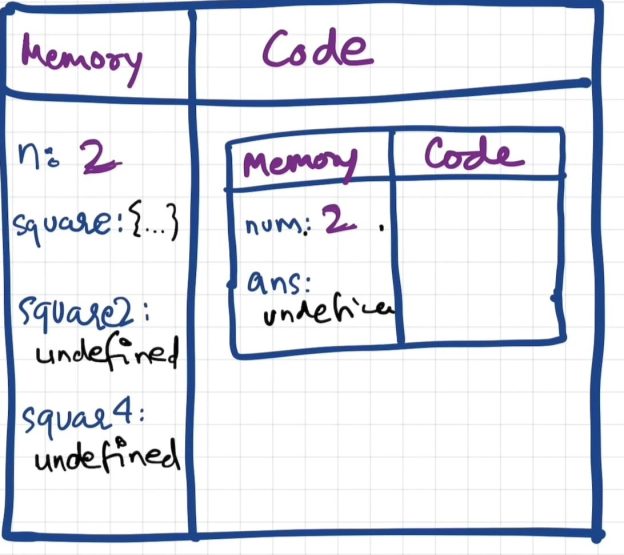 Memory
Code
n: 2
square: {...}
square2:
undefined
squar4:
undefined
Memory
Code
num: 2 .
ans: